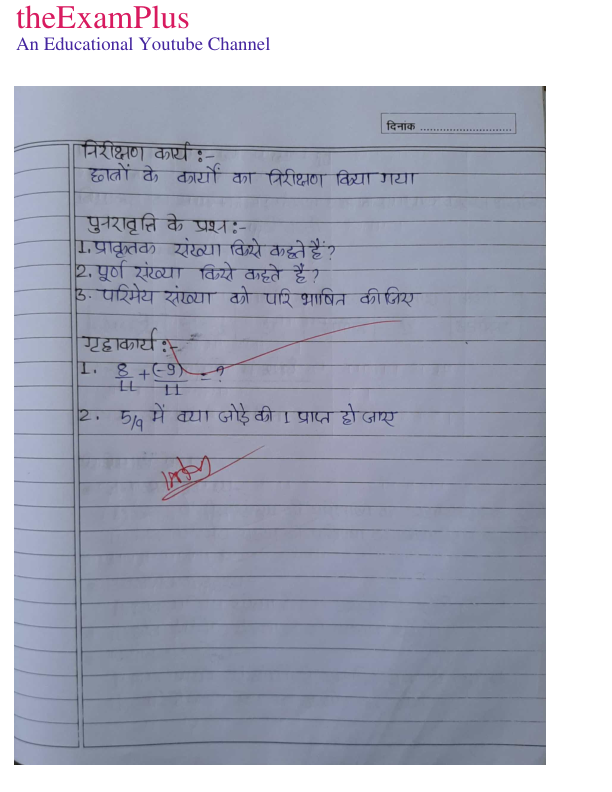 theExamPlus
An Educational Youtube Channel
दिनांक ............................
निरीक्षण कार्य :-
छात्रों के कार्यों का निरीक्षण किया गया
पुनरावृत्ति के प्रश्न :-
1. प्राकृतक संख्या किसे कहते हैं ?
2. पूर्ण संख्या किसे कहते हैं ?
3. परिमेय संख्या को परि भाषित कीजिए
गृहाकार्य :-
1. 8/11 + (-9)/11 = ?
2. 5/9 में क्या जोड़े की 1 प्राप्त हो जाए